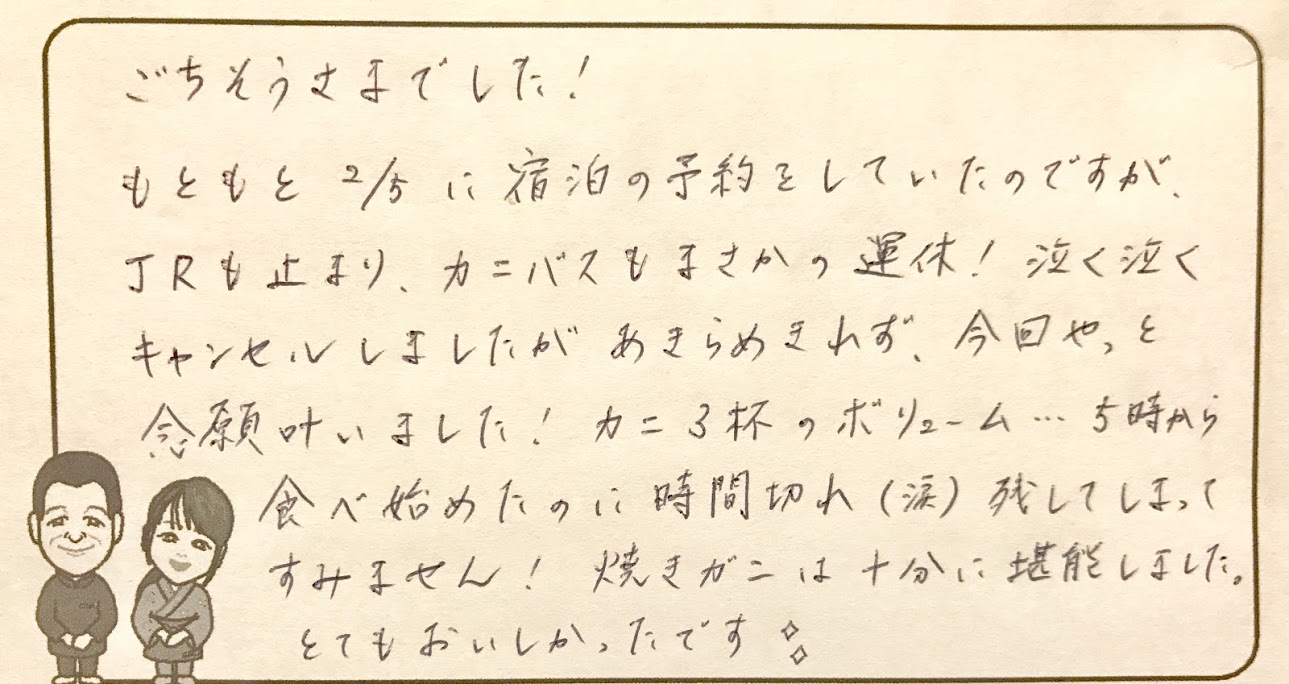 ごちそうさまでした!
もともと 2/5 に 宿泊の予約をしていたのですが、
JRも止まり、カニバスもまさかの運休! 泣く泣く
キャンセルしましたがあきらめきれず、今回やっと
念願叶いました! カニ3杯のボリューム… 5時から
食べ始めたのに時間切れ(涙) 残してしまって
すみません! 焼きガニは十分に堪能しました。
とてもおいしかったです